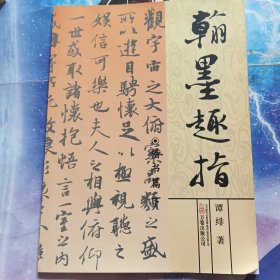 翰墨趣指
著
万卷出版公司
楷书篇
觀宇宙之大俯
類之盛
所以遊目騁懷足以極視聽之
娛信可樂也夫人之相與俯仰
一世或取諸懷抱悟言一室之內